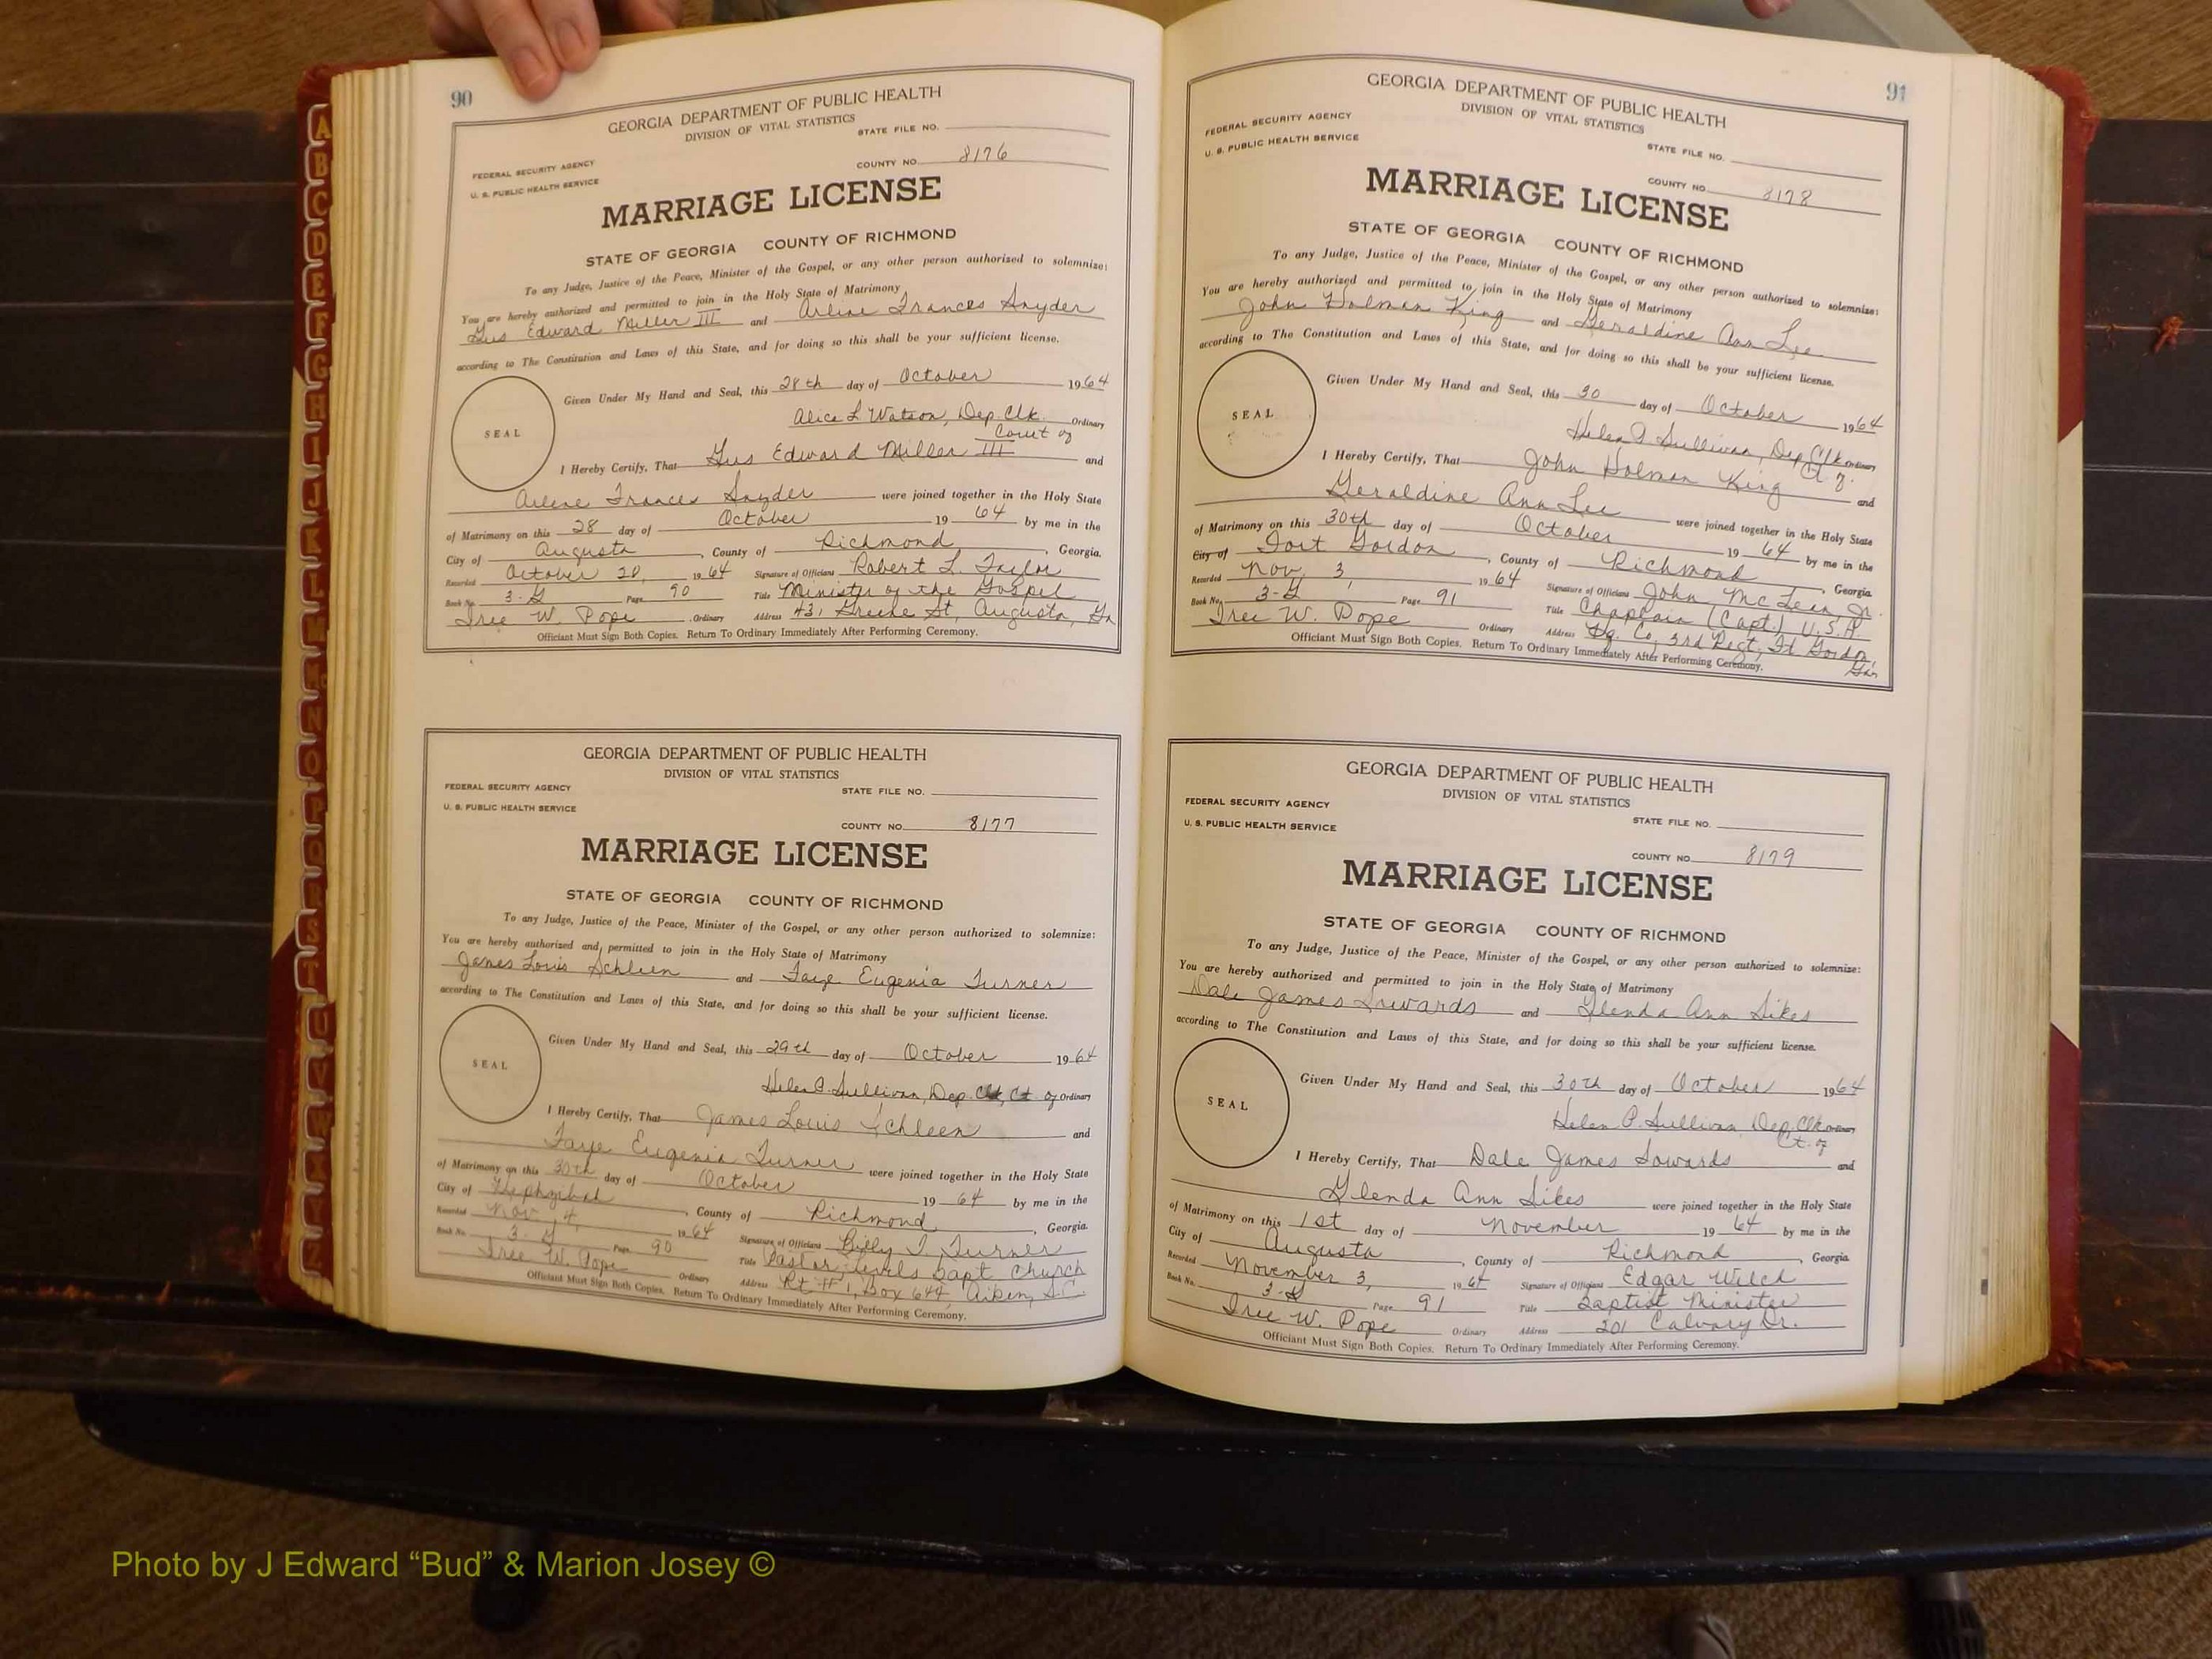 90
GEORGIA DEPARTMENT OF PUBLIC HEALTH
DIVISION OF VITAL STATISTICS
STATE FILE NO.
FEDERAL SECURITY AGENCY
U. S. PUBLIC HEALTH SERVICE
COUNTY NO. 8176
MARRIAGE LICENSE
STATE OF GEORGIA COUNTY OF RICHMOND
To any Judge, Justice of the Peace, Minister of the Gospel, or any other person authorized to solemnize:
You are hereby authorized and permitted to join in the Holy State of Matrimony
Gus Edward Miller III and Arline Frances Snyder
according to The Constitution and Laws of this State, and for doing so this shall be your sufficient license.
SEAL
Given Under My Hand and Seal, this 28th day of October 1964
Alice L Watson, Dep. Clk. Ordinary
Court of
I Hereby Certify, That Gus Edward Miller III and
Arlene Frances Snyder were joined together in the Holy State
of Matrimony on this 28 day of October 19 64 by me in the
City of Augusta, County of Richmond, Georgia.
Recorded October 28, 1964 Signature of Officiant Robert L. Taylor
Book No. 3-G Page 90 Title Minister of the Gospel
Iree W. Pope Ordinary Address 431 Greene St, Augusta, Ga
Officiant Must Sign Both Copies. Return To Ordinary Immediately After Performing Ceremony.
GEORGIA DEPARTMENT OF PUBLIC HEALTH
DIVISION OF VITAL STATISTICS
FEDERAL SECURITY AGENCY
STATE FILE NO.
U. S. PUBLIC HEALTH SERVICE
COUNTY NO. 8177
MARRIAGE LICENSE
STATE OF GEORGIA COUNTY OF RICHMOND
To any Judge, Justice of the Peace, Minister of the Gospel, or any other person authorized to solemnize:
You are hereby authorized and permitted to join in the Holy State of Matrimony
James Louis Schleen and Faye Eugenia Turner
according to The Constitution and Laws of this State, and for doing so this shall be your sufficient license.
SEAL
Given Under My Hand and Seal, this 29th day of October 1964
Helen P. Sullivan, Dep. Clk, Ct. of Ordinary
I Hereby Certify, That James Louis Schleen and
Faye Eugenia Turner were joined together in the Holy State
of Matrimony on this 30th day of October 19 64 by me in the
City of Hephzibah, County of Richmond, Georgia.
Recorded Nov. 4, 1964 Signature of Officiant Billy J. Turner
Book No. 3-G Page 90 Title Pastor, Levels Bapt Church
Iree W. Pope Ordinary Address Rt #1, Box 644, Aiken, S.C.
Officiant Must Sign Both Copies. Return To Ordinary Immediately After Performing Ceremony.
91
GEORGIA DEPARTMENT OF PUBLIC HEALTH
DIVISION OF VITAL STATISTICS
FEDERAL SECURITY AGENCY
U. S. PUBLIC HEALTH SERVICE
STATE FILE NO.
COUNTY NO. 8178
MARRIAGE LICENSE
STATE OF GEORGIA COUNTY OF RICHMOND
To any Judge, Justice of the Peace, Minister of the Gospel, or any other person authorized to solemnize:
You are hereby authorized and permitted to join in the Holy State of Matrimony
John Holman King and Geraldine Ann Lee
according to The Constitution and Laws of this State, and for doing so this shall be your sufficient license.
SEAL
Given Under My Hand and Seal, this 30 day of October 1964
Helen P Sullivan, Dep Clk Ordinary
Ct. of
I Hereby Certify, That John Holman King and
Geraldine Ann Lee were joined together in the Holy State
of Matrimony on this 30th day of October 19 64 by me in the
City of Fort Gordon, County of Richmond, Georgia
Recorded Nov. 3, 1964 Signature of Officiant John McLean Jr.
Book No. 3-G Page 91 Title Chaplain (Capt.) U.S.A.
Iree W. Pope Ordinary Address Hq. Co, 3rd Regt, Ft Gordon,
Ga.
Officiant Must Sign Both Copies. Return To Ordinary Immediately After Performing Ceremony.
GEORGIA DEPARTMENT OF PUBLIC HEALTH
DIVISION OF VITAL STATISTICS
FEDERAL SECURITY AGENCY
STATE FILE NO.
U. S. PUBLIC HEALTH SERVICE
COUNTY NO. 8179
MARRIAGE LICENSE
STATE OF GEORGIA COUNTY OF RICHMOND
To any Judge, Justice of the Peace, Minister of the Gospel, or any other person authorized to solemnize:
You are hereby authorized and permitted to join in the Holy State of Matrimony
Dale James Sowards and Glenda Ann Sikes
according to The Constitution and Laws of this State, and for doing so this shall be your sufficient license.
SEAL
Given Under My Hand and Seal, this 30th day of October 1964
Helen P. Sullivan, Dep. Clk Ordinary
Ct. of
I Hereby Certify, That Dale James Sowards and
Glenda Ann Sikes were joined together in the Holy State
of Matrimony on this 1st day of November 19 64 by me in the
City of Augusta, County of Richmond, Georgia
Recorded November 3, 1964 Signature of Officiant Edgar Welch
Book No. 3-G Page 91 Title Baptist Minister
Iree W. Pope Ordinary Address 201 Calvary Dr.
Officiant Must Sign Both Copies. Return To Ordinary Immediately After Performing Ceremony.
A
B
C
D
E
F
G
H
I
J
K
L
M
Mc
N
O
P
Q
R
S
T
U
V
W
X
Y
Z
Photo by J Edward “Bud” & Marion Josey ©